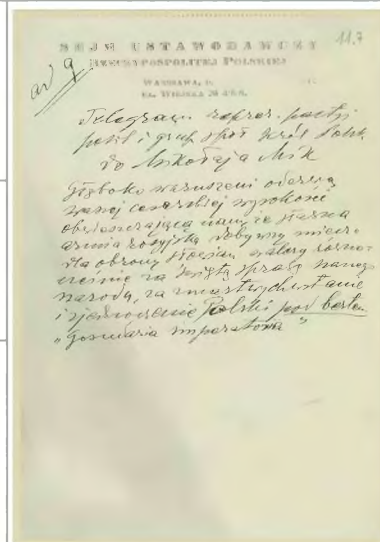 11.7
SEJM USTAWODAWCZY
RZECZYPOSPOLITEJ POLSKIEJ
WARSZAWA, D.
UL. WIEJSKA
Telegram reprez. partji
polit i grup społ Król Polsk
do Mikołaja Mik
Głęboko wzruszeni odezwą
waszej cesarskiej wysokości
obwieszczającą nam, że sławna
armia rosyjska dobywszy miecz
dla obrony słowian walczy równo
cześnie za świętą sprawę naszego
narodu, za zmartwychwstanie
i zjednoczenie Polski pod berłem
"Gosudaria imperatora"